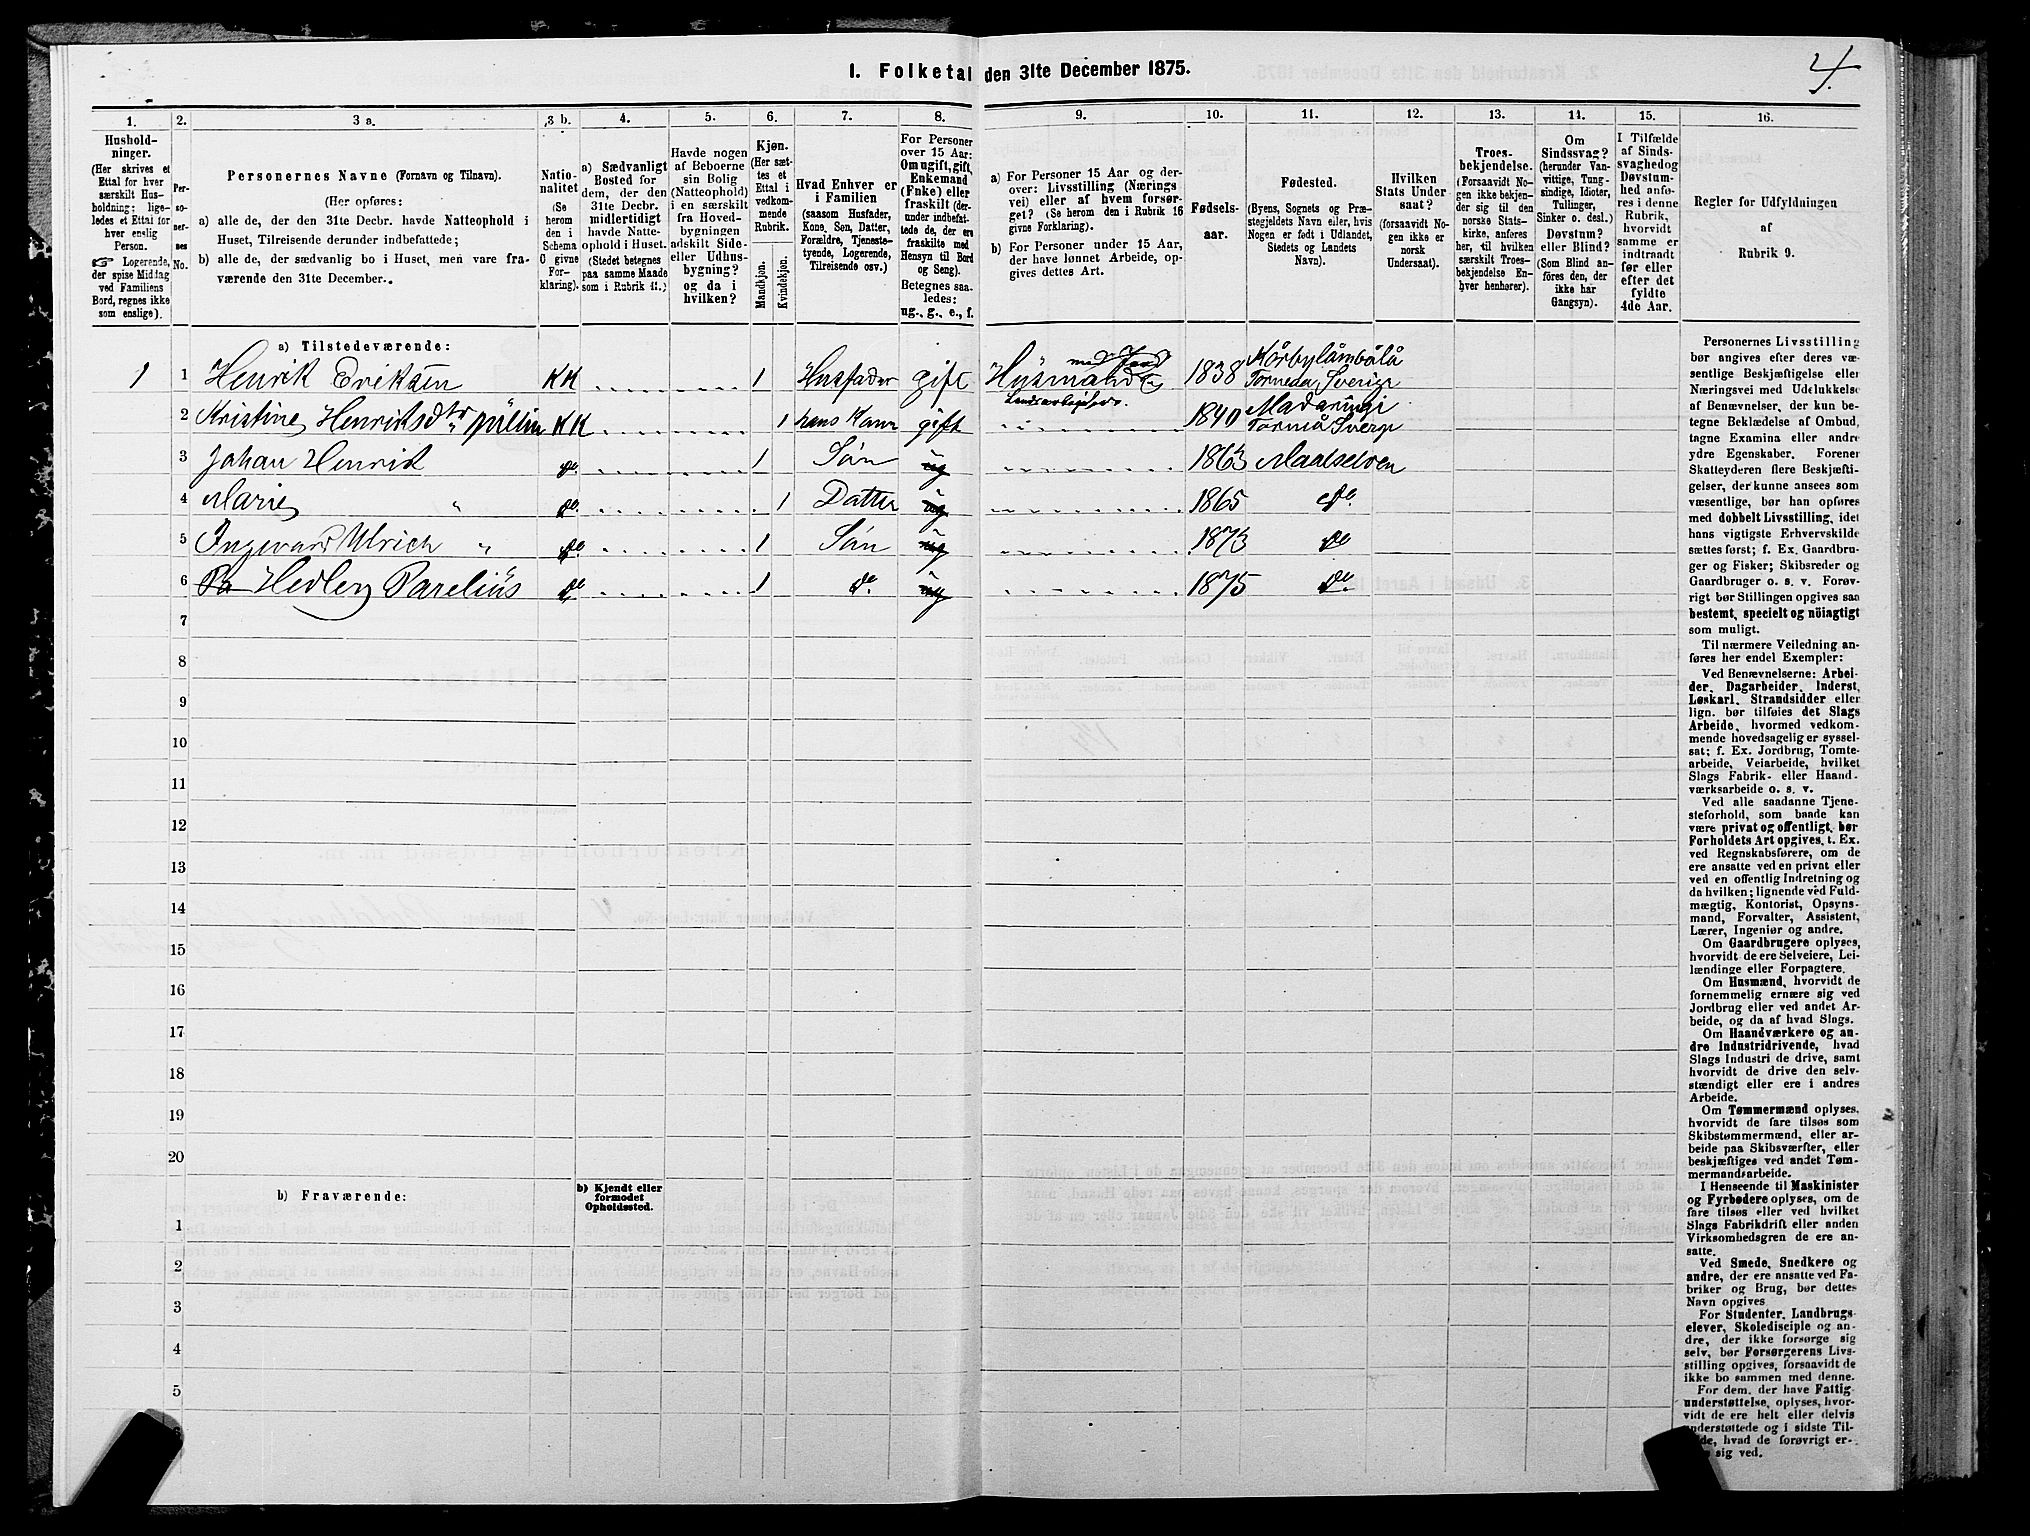 4.
1. Folketal den 31te December 1875.
1. 2. 3 a. 3 b. 4. 5. 6. 7. 8. 9. 10. 11. 12. 13. 14. 15. 16.
Hushold-
ninger.
(Her skrives et
Ettal for hver
særskilt Hus-
holdning; lige-
ledes et Ettal for
hver enslig
Person.
☞ Logerende,
der spise Middag
ved Familiens
Bord, regnes ikke
som enslige).
Per-
so-
ner-
nes
No.
Personernes Navne (Fornavn og Tilnavn).
(Her opføres:
a) alle de, der den 31te Decbr. havde Natteophold i
Huset, Tilreisende derunder indbefattede;
b) alle de, der sædvanlig bo i Huset, men vare fra-
værende den 31te December.
Natio-
nalitet
(Se
herom
den i
Schema
O givne
For-
klaring).
a) Sædvanligt
Bosted for
dem, der den
31te Decbr.
midlertidigt
havde Natte-
ophold i Huset.
(Stedet betegnes
paa samme Maade
som i Rubrik 11.)
Havde nogen
af Beboerne
sin Bolig
(Natteophold)
i en særskilt
fra Hoved-
bygningen
adskilt Side-
eller Udhus-
bygning?
og da i
hvilken?
Kjøn.
(Her sæt-
tes et
Ettal i
vedkom-
mende
Rubrik.
Mandkjøn.
Kvindekjøn.
Hvad Enhver er
i Familien
(saasom Husfader,
Kone, Søn, Datter,
Forældre, Tjeneste-
tyende, Logerende,
Tilreisende osv.)
For Personer
over 15 Aar:
Om ugift, gift,
Enkemand
(Enke) eller
fraskilt (der-
under indbefat-
tede de, der ere
fraskilte med
Hensyn til Bord
og Seng).
Betegnes saa-
ledes:
ug., g., e., f.
a) For Personer 15 Aar og der-
over: Livsstilling (Nærings
vei) eller af hvem forsør-
get? (Se herom den i Rubrik 16
givne Forklaring).
b) For Personer under 15 Aar,
der have lønnet Arbeide, op-
gives dettes Art.
Fødsels-
aar.
Fødested.
(Byens, Sognets og Præ-
stegjeldets Navn eller, hvis
Nogen er født i Udlandet,
Stedets og Landets
Navn).
Hvilken
Stats Under
saat?
(forsaavidt No-
gen ikke er
norsk
Undersaat).
Troes-
bekjendelse.
(Forsaavidt No-
gen ikke bekjen-
der sig til den
norske Stats-
kirke, anføres
her, til hvilken
særskilt Troes-
bekjendelse En-
hver henhører).
Om
Sindssvag?
(herunder Van-
vittige, Tung-
sindige, Idioter,
Tullinger,
Sinker o. desl.)
Døvstum?
eller Blind?
(Som Blind an-
føres den, der
ikke har
Gangsyn).
I Tilfælde
af Sinds-
svaghed og
Døvstum-
hed anfø-
res i denne
Rubrik,
hvorvidt
samme er
indtraadt
før eller
efter det
fyldte
4de Aar.
Regler for Udfyldningen
af
Rubrik 9.
a) Tilstedeværende:
1 1 Henrik Eriksen KK 1 Husfader gift Husmand med Jord 1838 Torneå Sverige
Landsarbeider.
2 Kristine Henriksdtr KK 1 hans Kone gift 1840 Torneå Sverge
3 Johan Henrik do. 1 Søn ug 1863 Maalselven
4 Marie " do. 1 Datter ug 1865 do.
5 Ingevard Ulrich " do. 1 Søn ug 1873 do
6 Hedley Parelius do 1 do. ug 1875 do.
7
8
9
10
11
12
13
14
15
16
17
18
19
20
b) Fraværende:
b) Kjendt eller
formodet
Opholdssted.
1
2
3
4
5
Personernes Livsstilling
bør angives efter deres væ-
sentlige Beskjæftigelse eller
Næringsvei med Udelukkelse
af Benævnelser, der kun be-
tegne Beklædelse af Ombud,
tagne Examina eller andre
ydre Egenskaber. Forener
Skatteyderen flere Beskjæfti-
gelser, der kunne ansees som
væsentlige, bør han opføres
med dobbelt Livsstilling, idet
hans vigtigste Erhvervskilde
sættes først; f. Ex. Gaardbru-
ger og Fisker; Skibsreder og
Gaardbruger o. s. v. Forøv-
rigt bør Stillingen opgives saa
bestemt, specielt og nöiagtigt
som muligt.
Til nærmere Veiledning an-
føres her endel Exempler:
Ved Benævnelserne: Arbei-
der, Dagarbeider, Inderst,
Løskarl, Strandsidder eller
lign. bør tilføies det Slags
Arbeide, hvormed vedkom-
mende hovedsagelig er syssel-
sat; f. Ex. Jordbrug, Tomte-
arbeide, Veiarbeide, hvilket
Slags Fabrik- eller Haand-
værksarbeide o. s. v.
Ved alle saadanne Tjene-
steforhold, som baade kan
være privat og offentligt, bør
Forholdets Art opgives, t. Ex.
ved Regnskabsførere, om de
ere ansatte ved en privat eller
ved en offentlig Indretning og
da hvilken; lignende ved Fuld-
mægtig, Kontorist, Opsyns-
mand, Forvalter, Assistent,
Lærer, Ingeniør og andre.
Om Gaardbrugere oplyses,
hvorvidt de ere Selveiere, Lei-
lændinge eller Forpagtere.
Om Husmænd, hvorvidt de
fornemmelig ernære sig ved
Jordbrug eller ved andet Ar-
beide, og da af hvad Slags.
Om Haandværkere og an-
dre Industridrivende, hvad
Slags Industri de drive, samt
hvorvidt de drive den selv-
stændigt eller ere i andres
Arbeide.
Om Tømmermænd oplyses,
hvorvidt de fare tilsøs som
Skibstømmermænd, eller ar-
beide paa Skibsværfter, eller
beskjæftiges ved andet Tøm-
mermandsarbeide.
I Henseende til Maskinister
og Fyrbødere oplyses, om de
fare tilsøs eller ved hvilket
Slags Fabrikdrift eller anden
Virksomhedsgren de ere an-
satte.
Ved Smede, Snedkere og
andre, der ere ansatte ved Fa-
briker og Brug, bør dettes
Navn opgives
For Studenter, Landbrugs-
elever, Skoledisciple og an-
dre, der ikke forsørge sig
selv, bør Forsørgerens Livs-
stilling opgives, forsaavidt de
ikke bo sammen med denne.
For dem, der have Fattig-
understøttelse, oplyses, hvor-
vidt de ere helt eller delvis
understøttede og i sidste Til-
hvad de forøvrigt er-
sig ved.